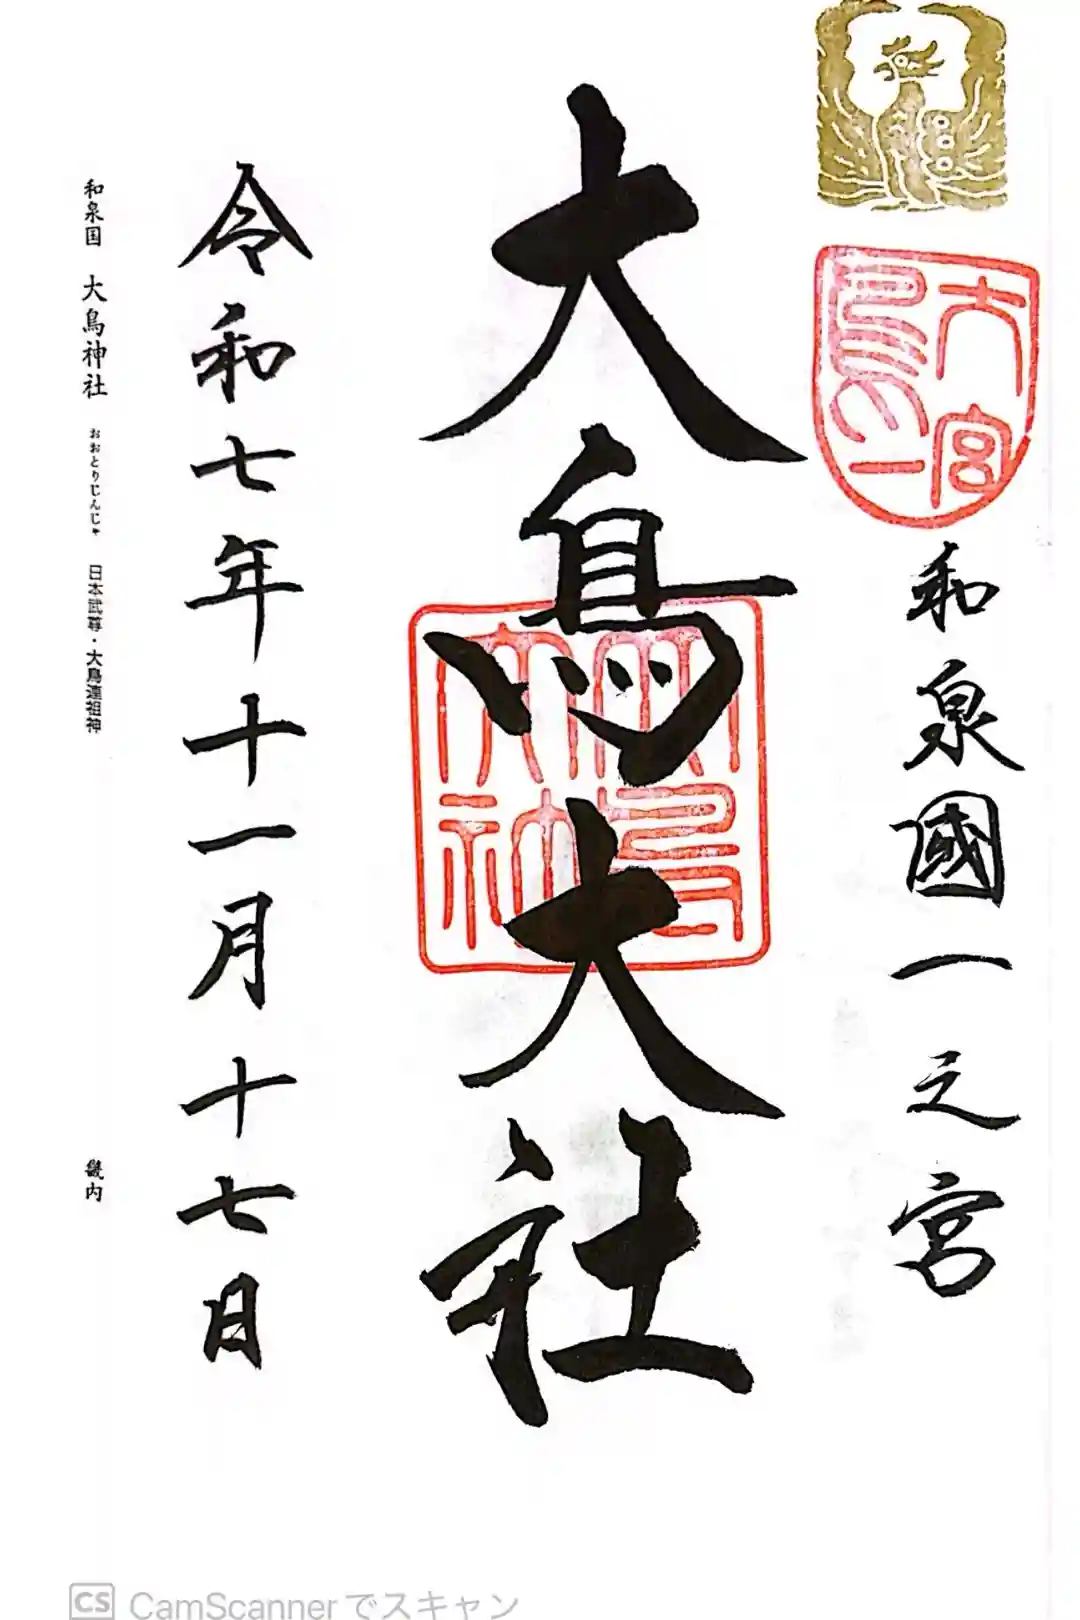 和泉國一之宮
大鳥大社
令和七年十一月十七日
和泉国 大鳥神社 おおとりじんじゃ 日本武尊・大鳥連祖神 畿内
CS CamScannerでスキャン